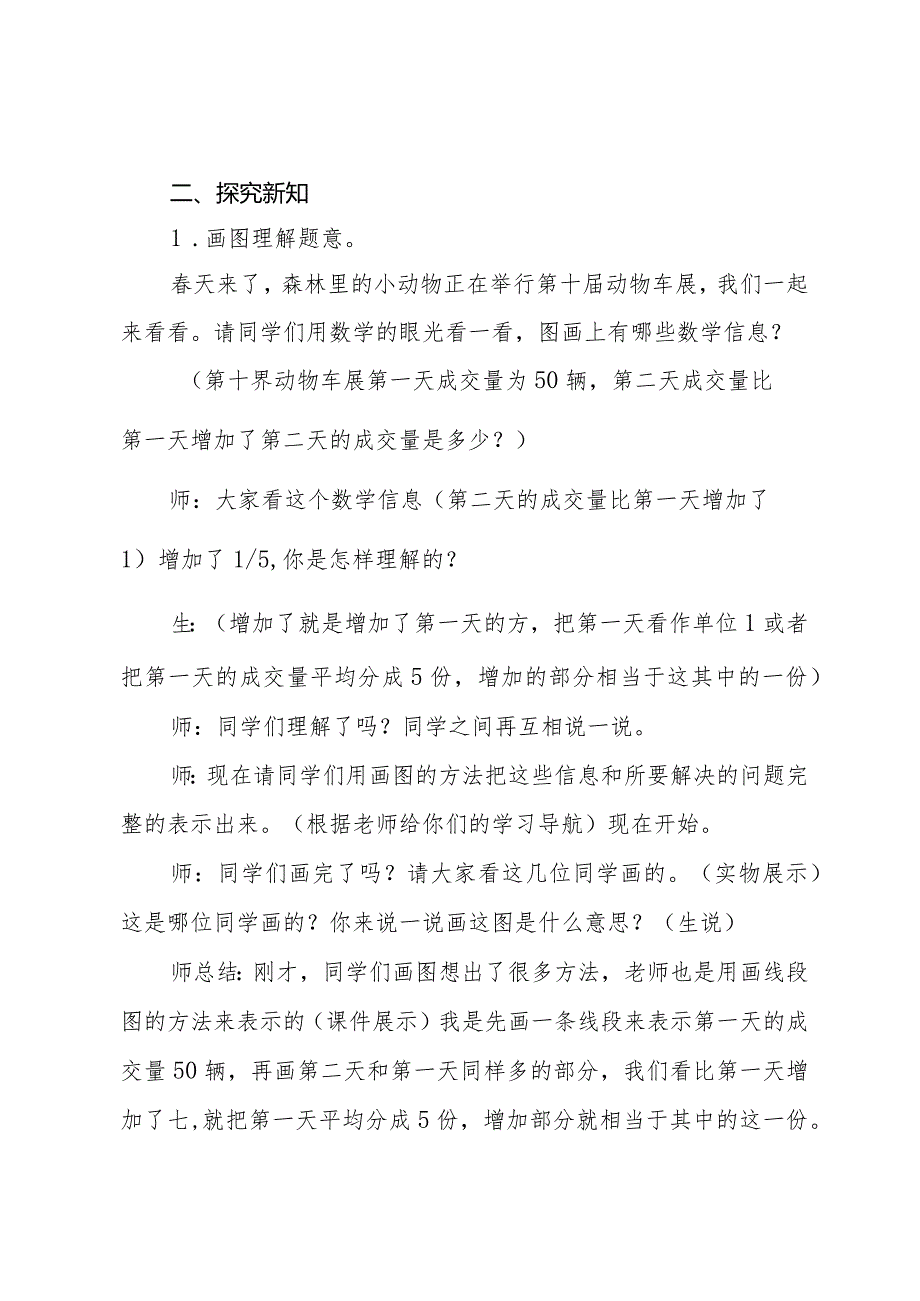 二、探究新知
1 .画图理解题意。
春天来了，森林里的小动物正在举行第十届动物车展，我们一起
来看看。请同学们用数学的眼光看一看，图画上有哪些数学信息？
（第十界动物车展第一天成交量为 50 辆，第二天成交量比
第一天增加了第二天的成交量是多少？）
师：大家看这个数学信息（第二天的成交量比第一天增加了
1）增加了 1/5,你是怎样理解的？
生：（增加了就是增加了第一天的方，把第一天看作单位 1 或者
把第一天的成交量平均分成 5 份，增加的部分相当于这其中的一份）
师：同学们理解了吗？同学之间再互相说一说。
师：现在请同学们用画图的方法把这些信息和所要解决的问题完
整的表示出来。（根据老师给你们的学习导航）现在开始。
师：同学们画完了吗？请大家看这几位同学画的。（实物展示）
这是哪位同学画的？你来说一说画这图是什么意思？（生说）
师总结：刚才，同学们画图想出了很多方法，老师也是用画线段
图的方法来表示的（课件展示）我是先画一条线段来表示第一天的成
交量 50 辆，再画第二天和第一天同样多的部分，我们看比第一天增
加了七,就把第一天平均分成 5 份，增加部分就相当于其中的这一份。